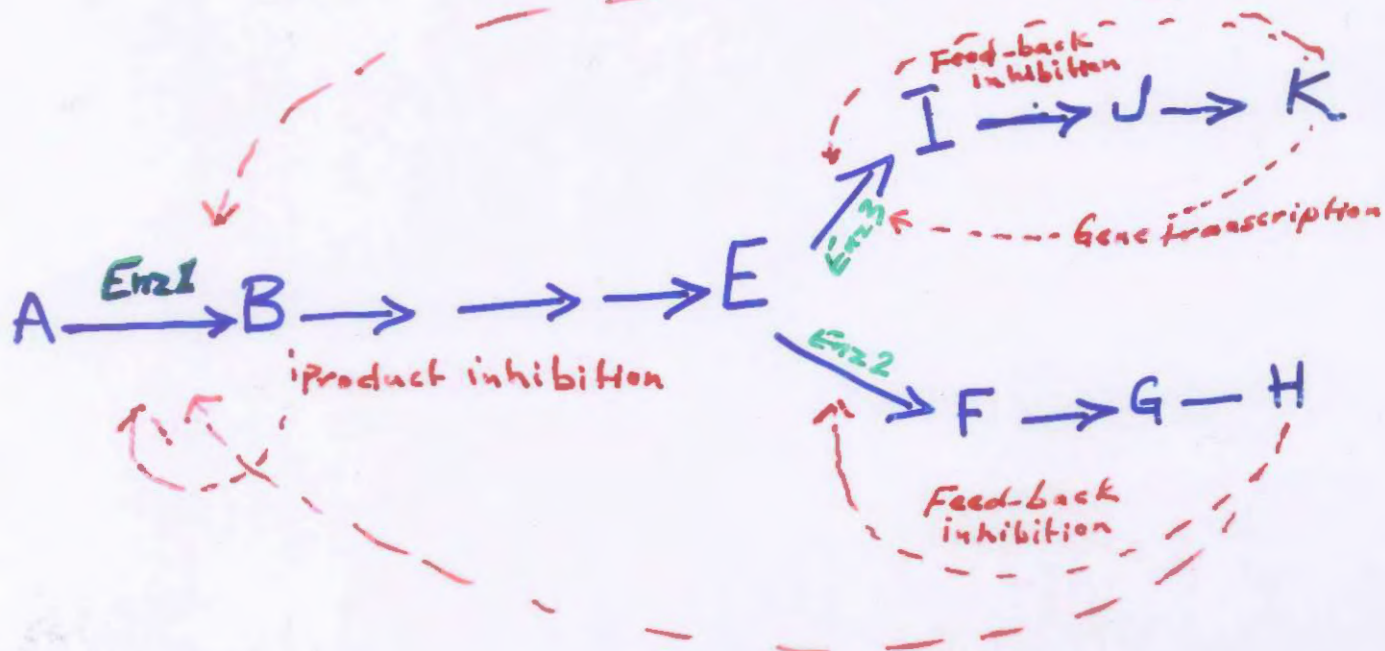 Feed-back
inhibition
I J K
Gene transcription
Enz1
A B E
Enz2
product inhibition
F G H
Feed-back
inhibition